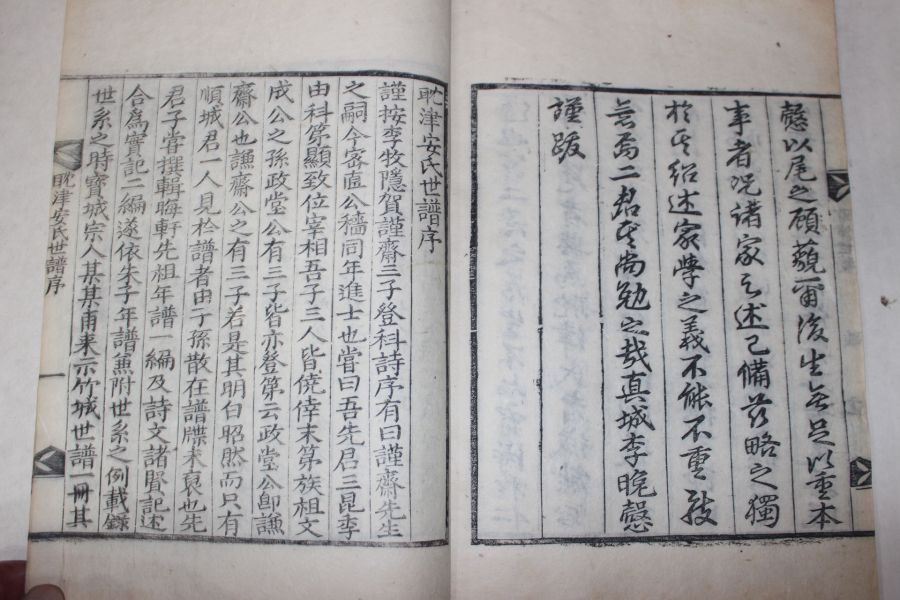 慤以尾之顧藐爾後生無足以重本
事者況諸家之述已備若略之獨
於其紹述家學之義不能不重致
意焉二君其尚勉之哉真城李晚慤
謹跋
耽津安氏世譜序
謹按李牧隱賀謹齋三子登科詩序有曰謹齋先生
之嗣今密直公穡同年進士也嘗曰吾先君三昆季
由科第顯致位宰相吾子三人皆僥倖末第族祖文
成公之孫政堂公有三子皆亦登第云政堂公卽謙
齋公也謙齋公之有三子若是其明白昭然而只有
順城君一人見於譜者由子孫散在譜牒未裒也先
君子嘗撰輯晦軒先祖年譜一編及詩文諸賢記述
合爲實記二編遂依朱子年譜兼附世系之例載錄
世系之時寶城宗人某某甫來示竹城世譜一冊其
耽津安氏世譜序
一